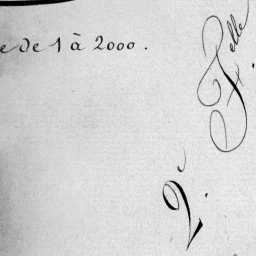 e de 1 à 2000.
2e. Flle